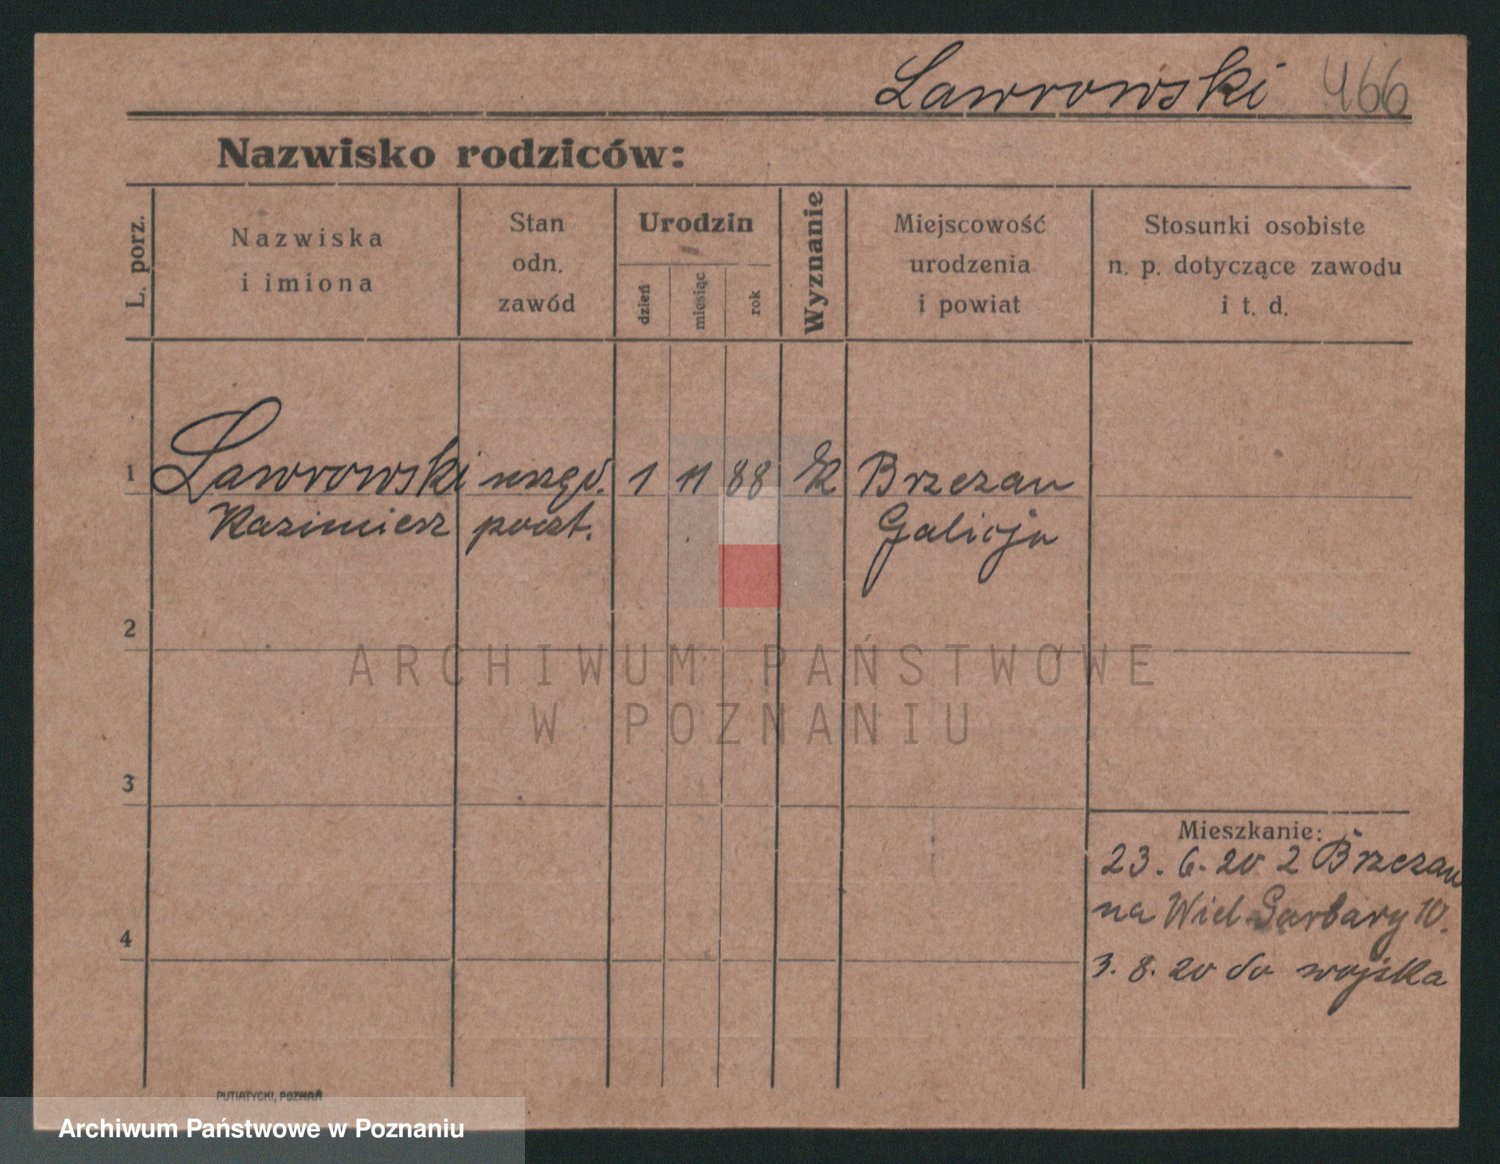 Lawrowski 466
Nazwisko rodziców:
L. porz.
Nazwiska
i imiona
Stan
odn.
zawód
Urodzin
dzień
miesiąc
rok
Wyznanie
Miejscowość
urodzenia
i powiat
Stosunki osobiste
n. p. dotyczące zawodu
i t. d.
1 Lawrowski urzęd. 1 11 88 rk Brzezan
Kazimierz poczt. Galicja
2
ARCHIWUM PAŃSTWOWE
W POZNANIU
3
Mieszkanie:
23. 6. 20 z Brzezan
na Wiel Garbary 10.
4
3. 8. 20 do wojska
PUTIATYCKI, POZNAŃ
Archiwum Państwowe w Poznaniu